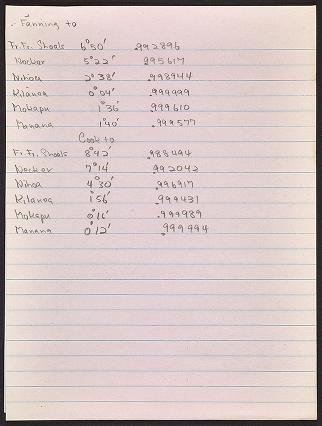 Fanning to
Fr. Fr. Shoals 6°50' .992896
Neckar 5°22' .995617
Nihoa 2°38' .998944
Kilanoa 0°04' .999999
Mokapu 1°36' .999610
Manana 1°40' .999577
Cook to
Fr. Fr. Shoals 8°42' .988494
Neckar 7°14' .992042
Nihoa 4°30' .996917
Kilanoa 1°56' .999431
Mokapu 0°16' .999989
Manana 0°12' .999994